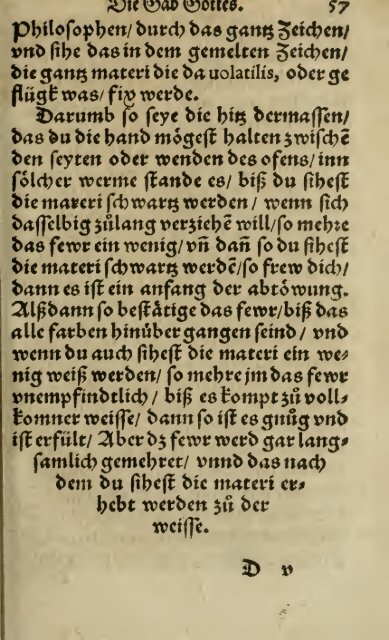 Die Gab Gottes. 57
Philosophen/ durch das gantz Zeichen/
vnd sihe das in dem gemelten Zeichen/
die gantz materi die da uolatilis, oder ge
flügkt was/ fix werde.
Darumb so seye die hitz dermassen/
das du die hand mögest halten zwischē
den seyten oder wenden des ofens/ inn
sölcher werme stande es/ biß du sihest
die materi schwartz werden/ wenn sich
dasselbig zůlang verziehē will/ so mehre
das fewr ein wenig/ vñ dañ so du sihest
die materi schwartz werdē/ so frew dich/
dann es ist ein anfang der abtöwung.
Alßdann so bestätige das fewr/ biß das
alle farben hinüber gangen seind/ vnd
wenn du auch sihest die materi ein we⸗
nig weiß werden/ so mehre jm das fewr
vnempfindtlich/ biß es kompt zů voll⸗
komner weisse/ dann so ist es gnůg vnd
ist erfült/ Aber dz fewr werd gar lang⸗
samlich gemehret/ vnnd das nach
dem du sihest die materi er⸗
hebt werden zů der
weisse.
D v